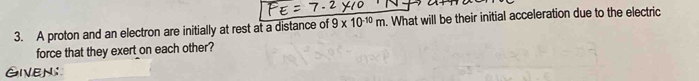 FE = 7.2 x10 N →
3. A proton and an electron are initially at rest at a distance of 9 x 10-10 m. What will be their initial acceleration due to the electric
force that they exert on each other?
GIVEN: